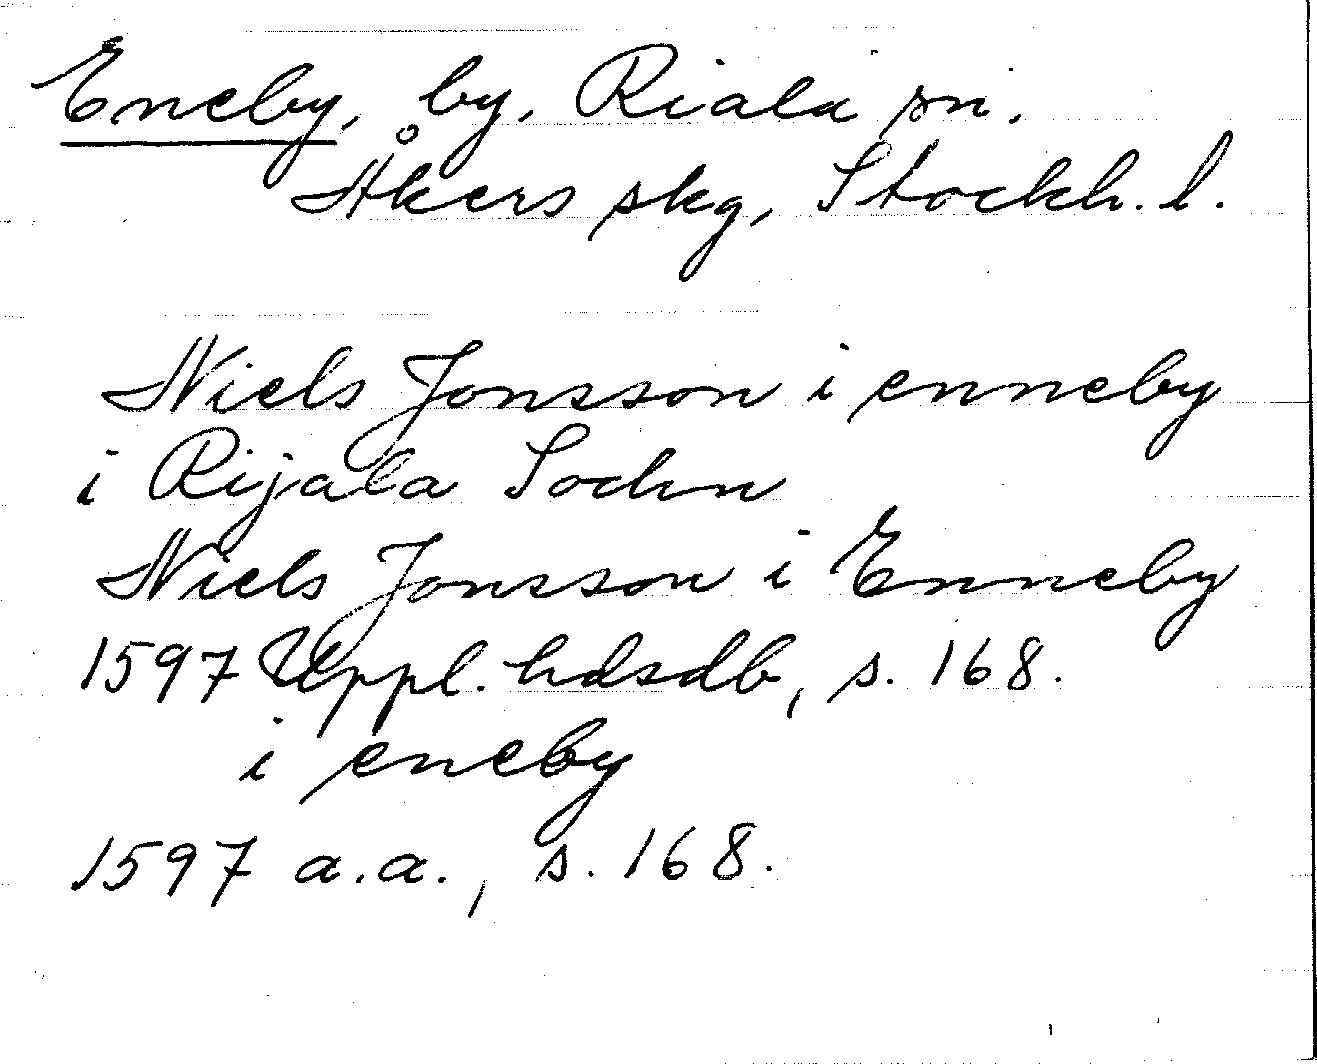 Eneby, by, Riala sn.
Åkers skg, Stockh. l.
Niels Jonsson i enneby
i Rijala Sochn
Niels Jonsson i Enneby
1597 Uppl. hdsdb, s. 168.
i eneby
1597 a.a., s. 168.